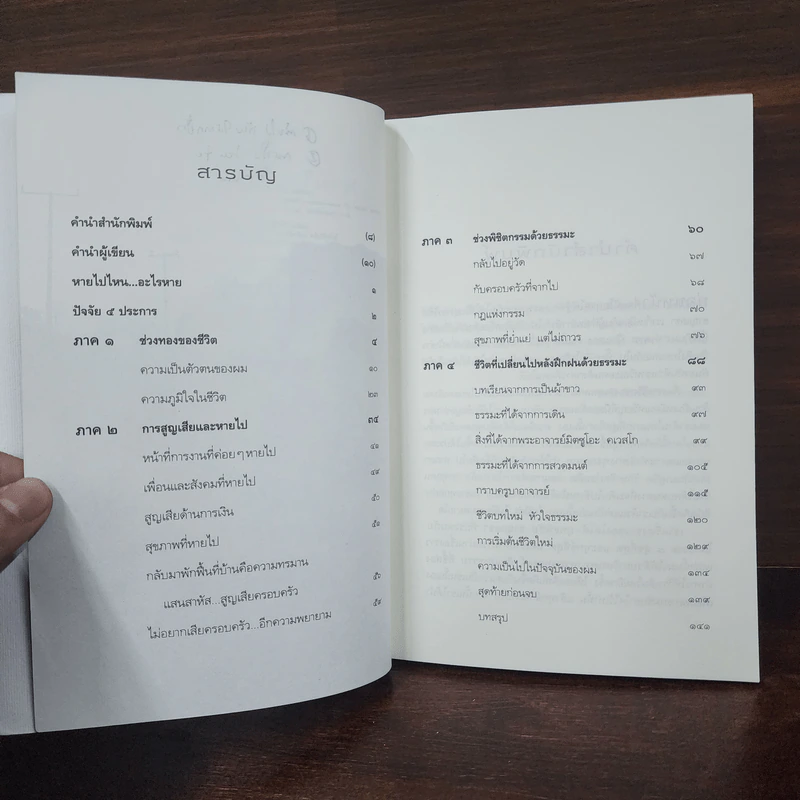 สารบัญ
คำนำสำนักพิมพ์ (๘)
คำนำผู้เขียน (๑๐)
หายไปไหน...อะไรหาย ๑
ปัจจัย ๔ ประการ ๒
ภาค ๑ ช่วงทองของชีวิต ๔
ความเป็นตัวตนของผม ๑๐
ความภูมิใจในชีวิต ๒๓
ภาค ๒ การสูญเสียและหายไป ๓๔
หน้าที่การงานที่ค่อยๆ หายไป
เพื่อนและสังคมที่หายไป ๔๙
สูญเสียด้านการเงิน ๕๐
สุขภาพที่หายไป
กลับมาพักฟื้นที่บ้านคือความทรมาน
แสนสาหัส...สูญเสียครอบครัว
ไม่อยากเสียครอบครัว...อีกความพยายาม
ภาค ๓ ช่วงพิชิตกรรมด้วยธรรมะ ๖๐
กลับไปอยู่วัด ๖๗
กับครอบครัวที่จากไป ๖๘
กฎแห่งกรรม ๗๐
สุขภาพที่ย่ำแย่ แต่ไม่ถาวร ๗๖
ภาค ๔ ชีวิตที่เปลี่ยนไปหลังฝึกฝนด้วยธรรมะ ๘๘
บทเรียนจากการเป็นผ้าขาว ๙๓
ธรรมะที่ได้จากการเดิน ๙๗
สิ่งที่ได้จากพระอาจารย์มิตซูโอะ คเวสโก ๙๙
ธรรมะที่ได้จากการสวดมนต์ ๑๐๕
กราบครูบาอาจารย์ ๑๑๕
ชีวิตบทใหม่ หัวใจธรรมะ ๑๒๐
การเริ่มต้นชีวิตใหม่ ๑๒๙
ความเป็นไปในปัจจุบันของผม ๑๓๔
สุดท้ายก่อนจบ ๑๓๙
บทสรุป ๑๔๑